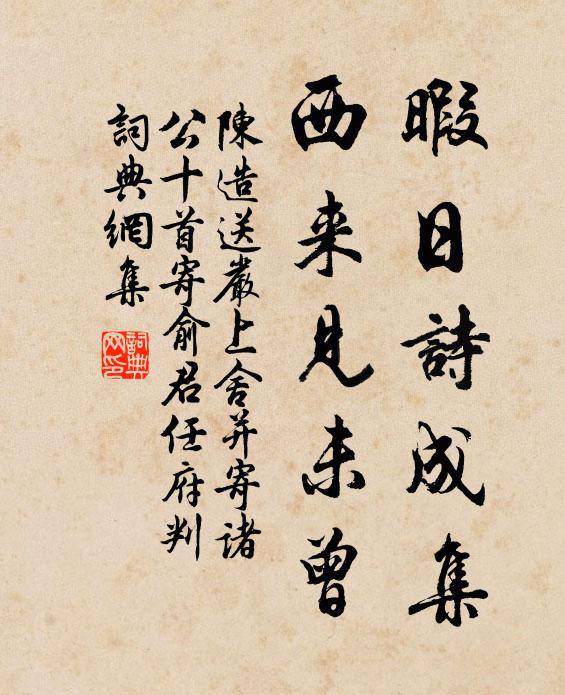 暇日詩成集
西来見未曾
陳造送嚴上舍并寄諸
公十首寄俞君任府判
詞典網集
詞典
网印